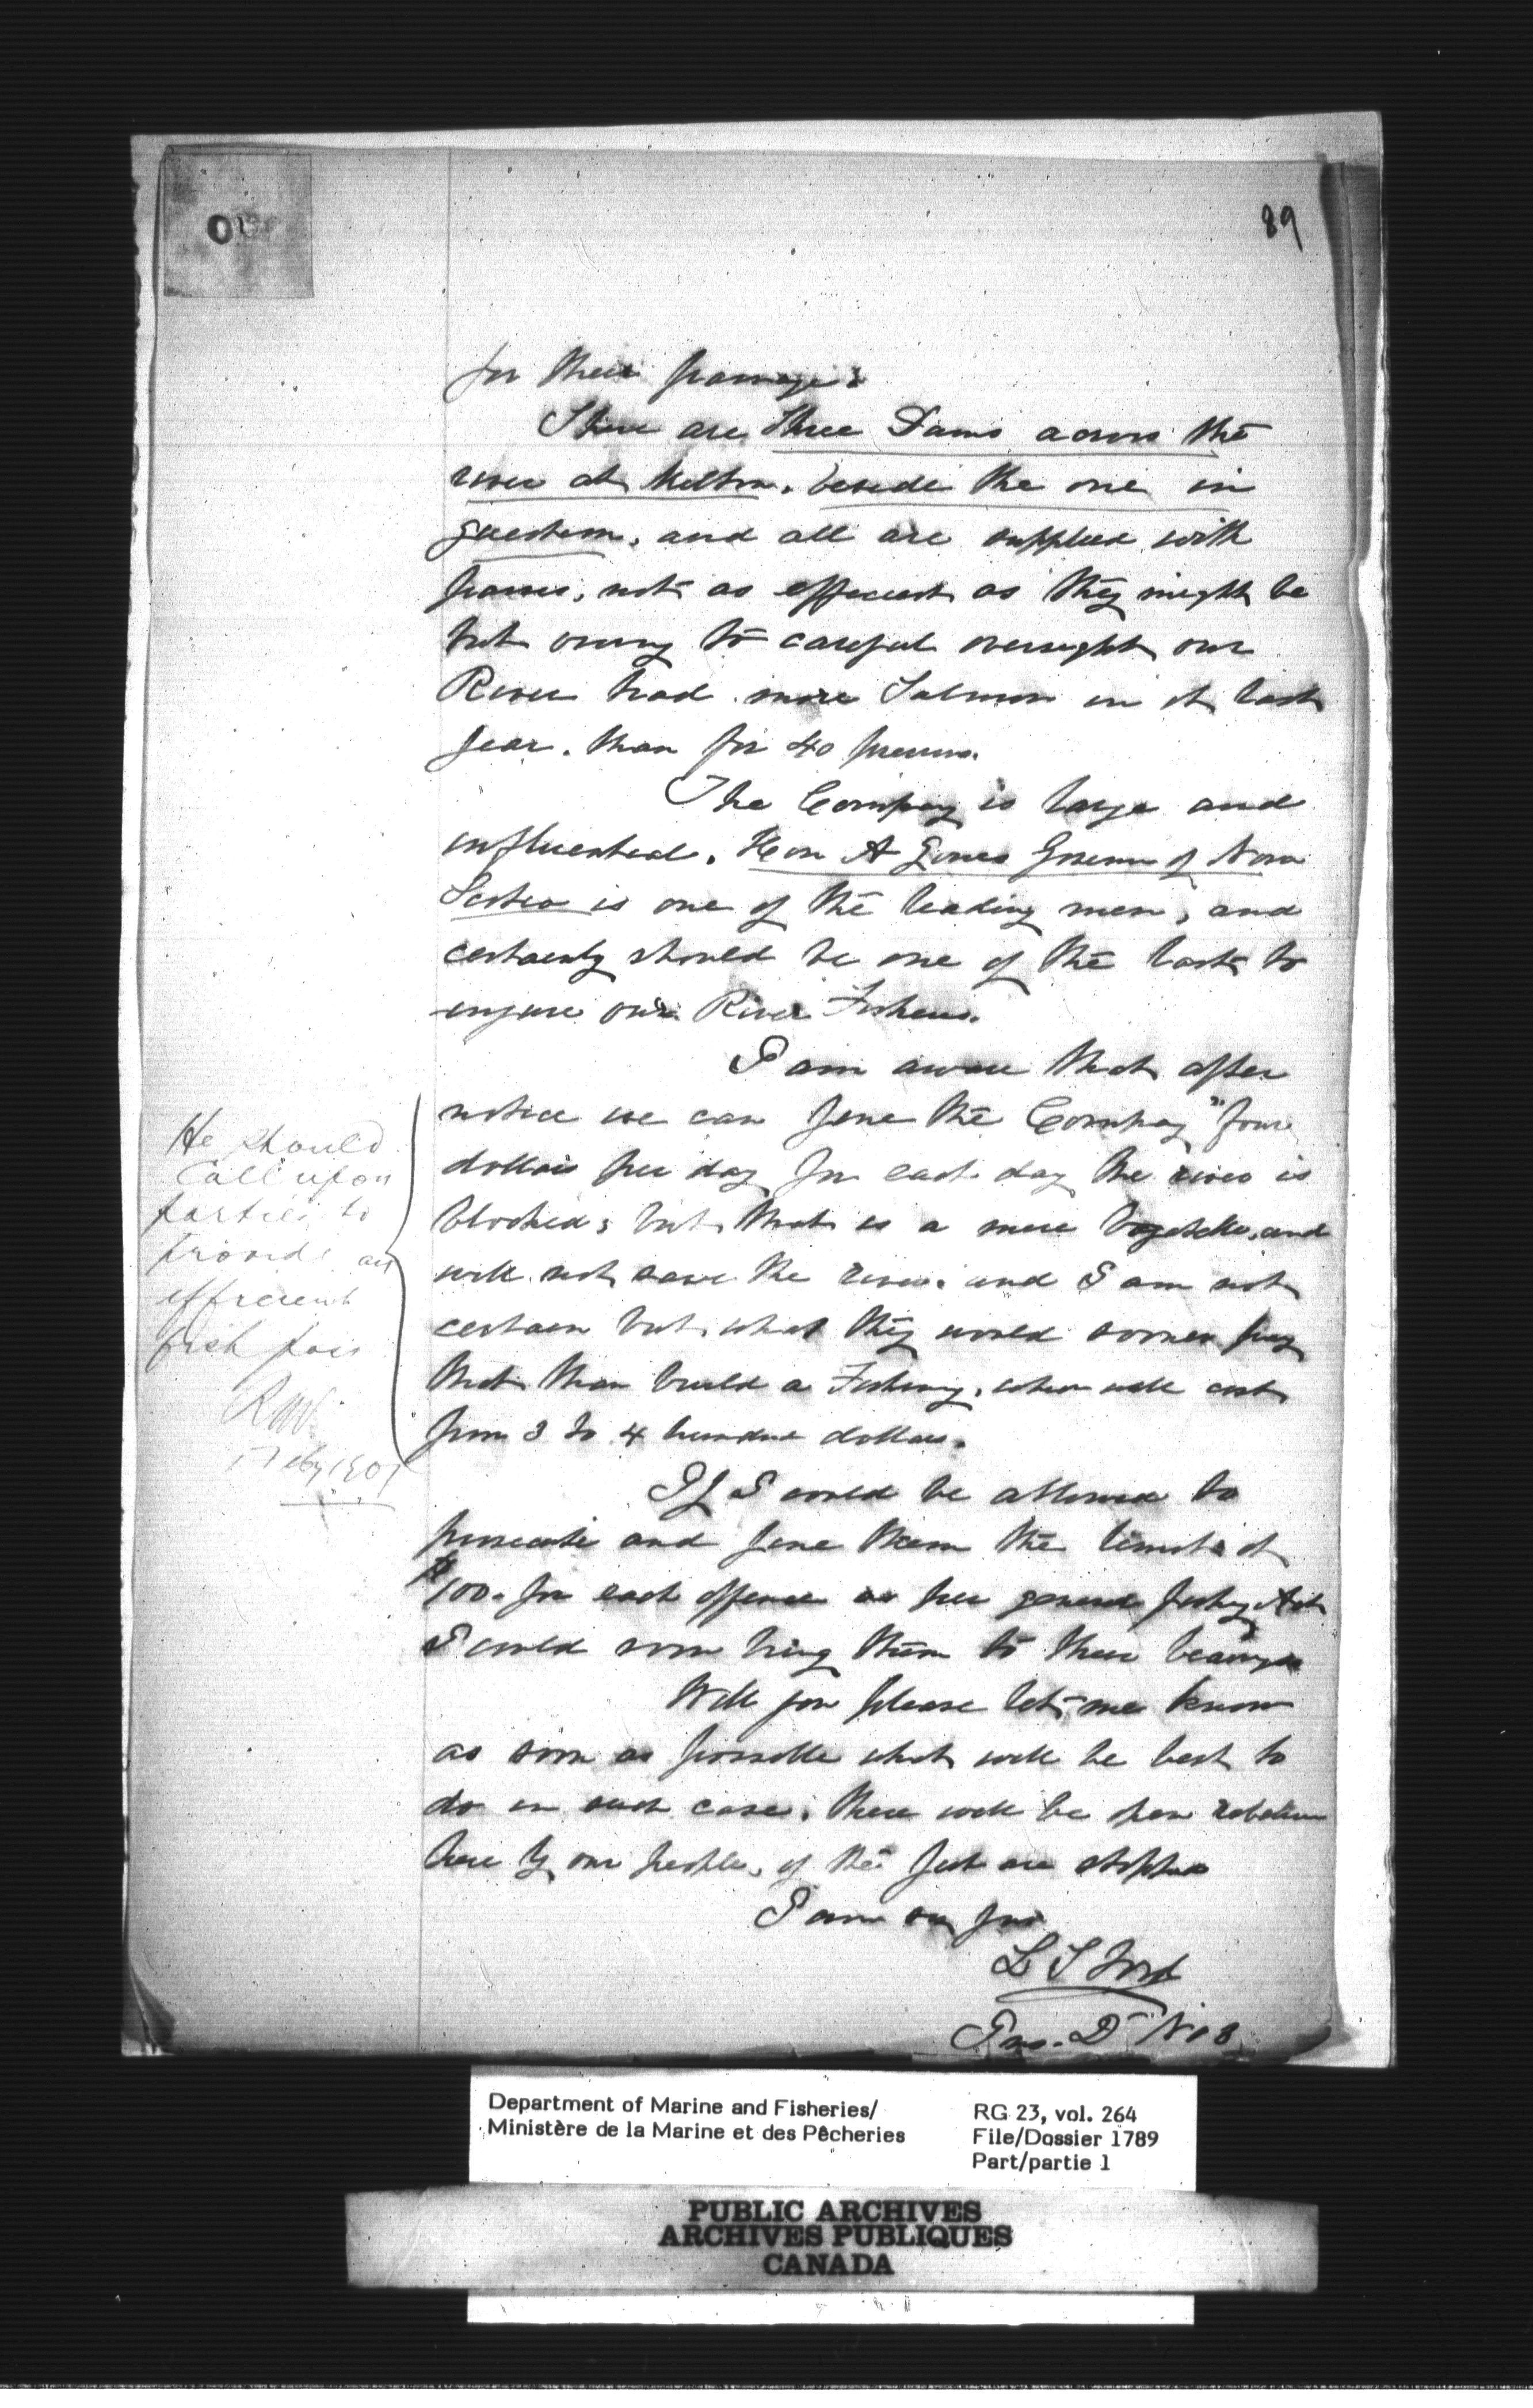 89
for their passage.
There are three Dams across the
river at Milton, beside the one in
question, and all are supplied with
passes, not as efficient as they might be
but owing to careful oversight our
River had more Salmon in it last
year, than for 40 previous.
The Company is large and
influential. Hon A Jones Governor of Nova
Scotia is one of the leading men, and
certainly should be one of the last to
injure our River Fisheries.
I am aware that after
notice we can fine the Company "four
dollars per day for each day the river is
blocked; but that is a mere bagatelle, and
will not save the river. and I am not
certain but what they would sooner pay
that than build a Fishway, which will cost
from 3 to 4 hundred dollars.
If I could be allowed to
prosecute and fine them the limit of
$100. for each offence as per general fishery Act
I could soon bring them to their bearings
Will you please let me know
as soon as possible what will be best to
do in such case. there will be open rebellion
here by our people, if the fish are stopped
I am sir yours
L S Ford
Ins. D No 3
He should
call upon
parties to
provide an
efficient
fish pass
Feby 1901
Department of Marine and Fisheries/
Ministère de la Marine et des Pêcheries
RG 23, vol. 264
File/Dossier 1789
Part/partie 1
PUBLIC ARCHIVES
ARCHIVES PUBLIQUES
CANADA